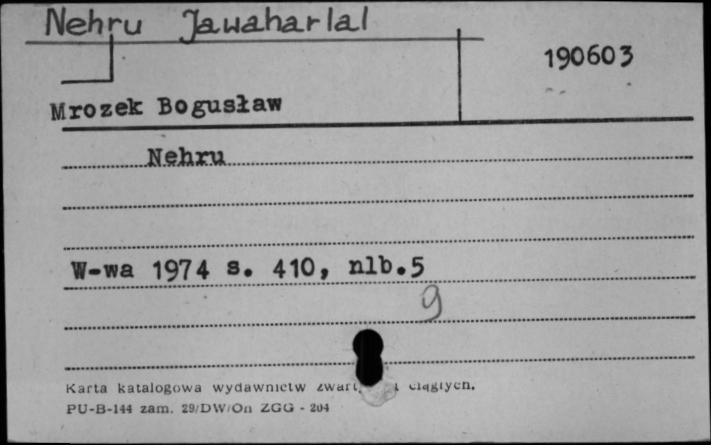 Nehru Jawaharlal
190603
Mrozek Bogusław
Nehru
W-wa 1974 s. 410, nlb.5
9
Karta katalogowa wydawnictw ciągłych.
PU-B-144 zam. 29/DW/On ZGG - 204